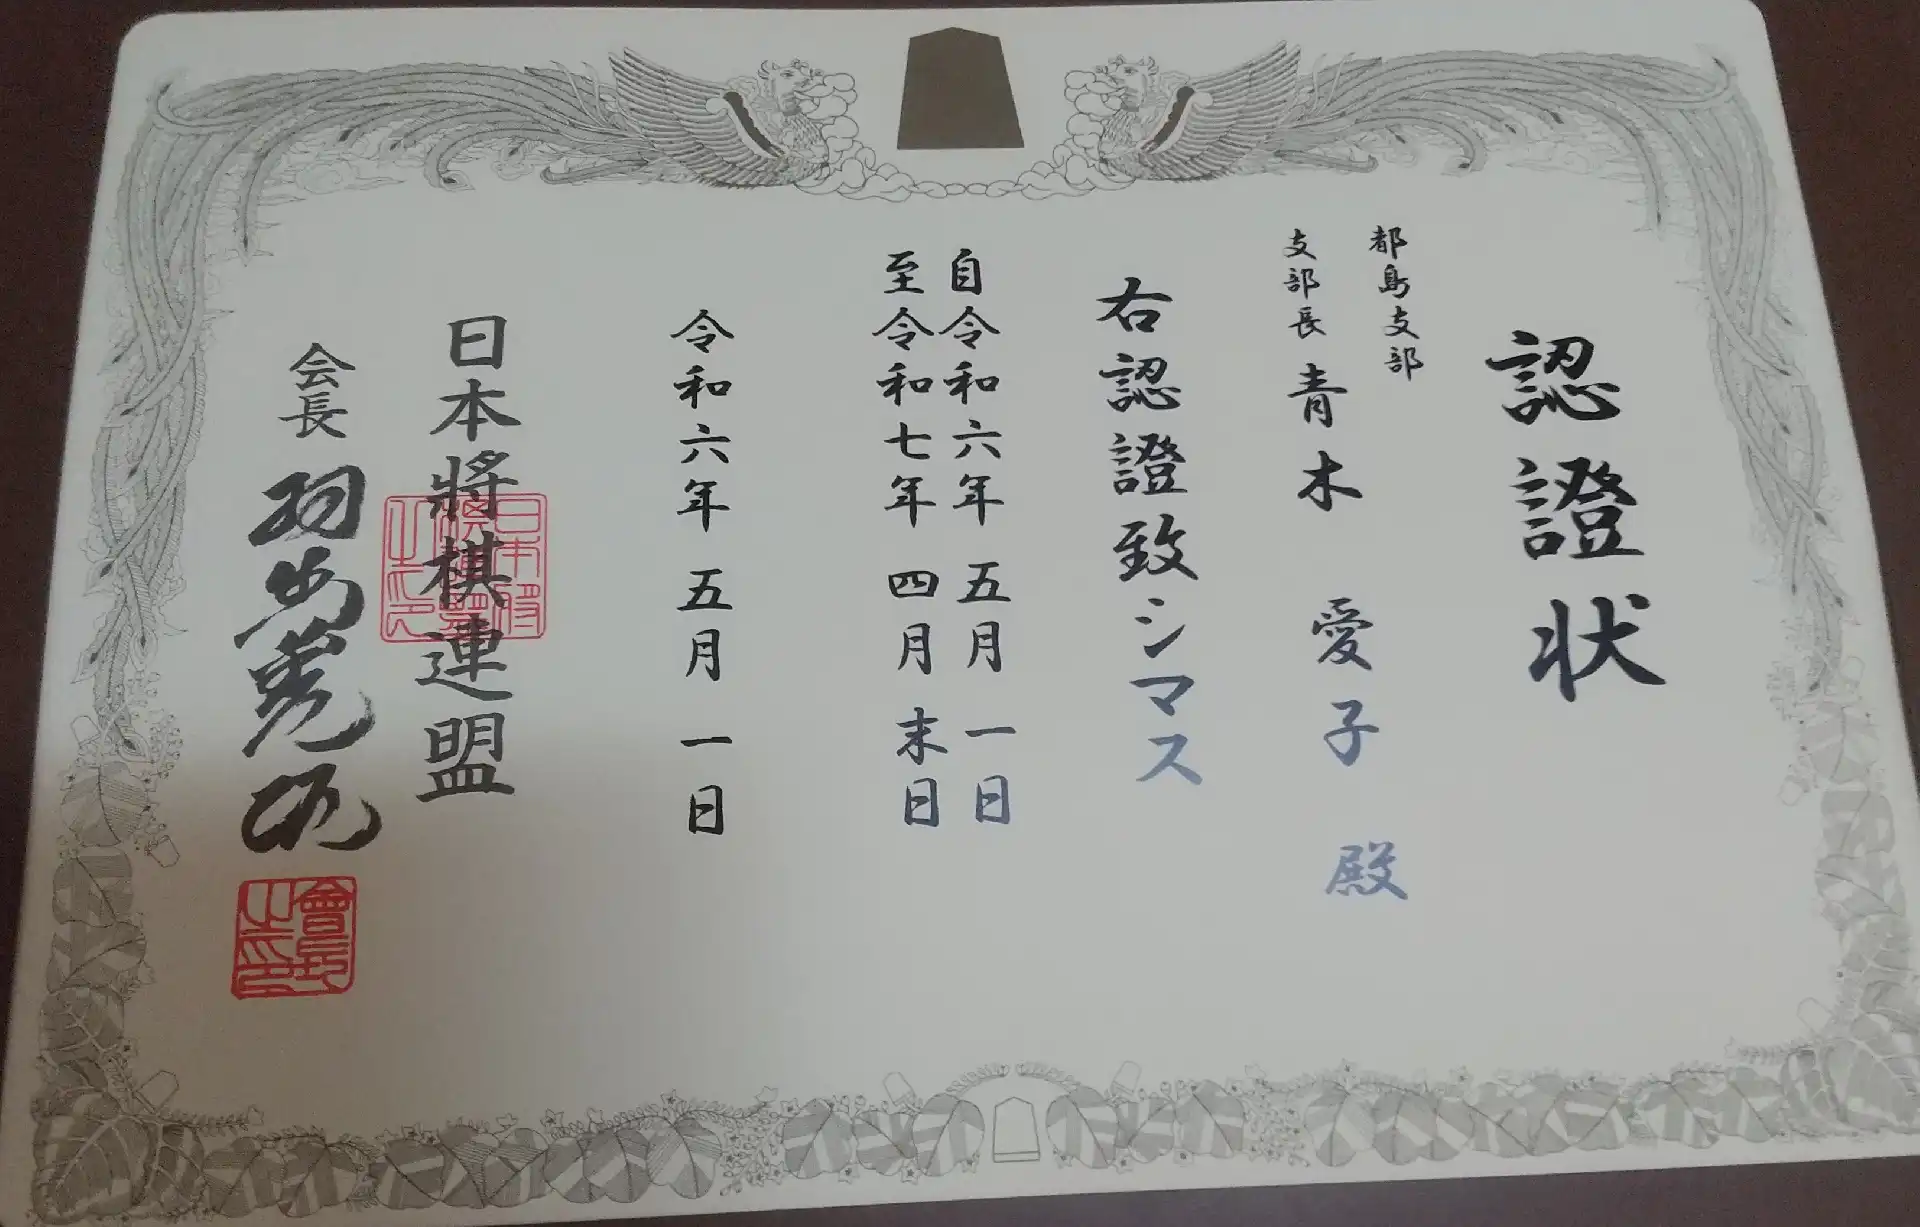 認證状
都島支部
支部長 青木 愛子 殿
右認證致シマス
自令和六年 五月 一日
至令和七年 四月 末日
令和六年 五月 一日
日本將棋連盟
会長 羽生善治
會長之印